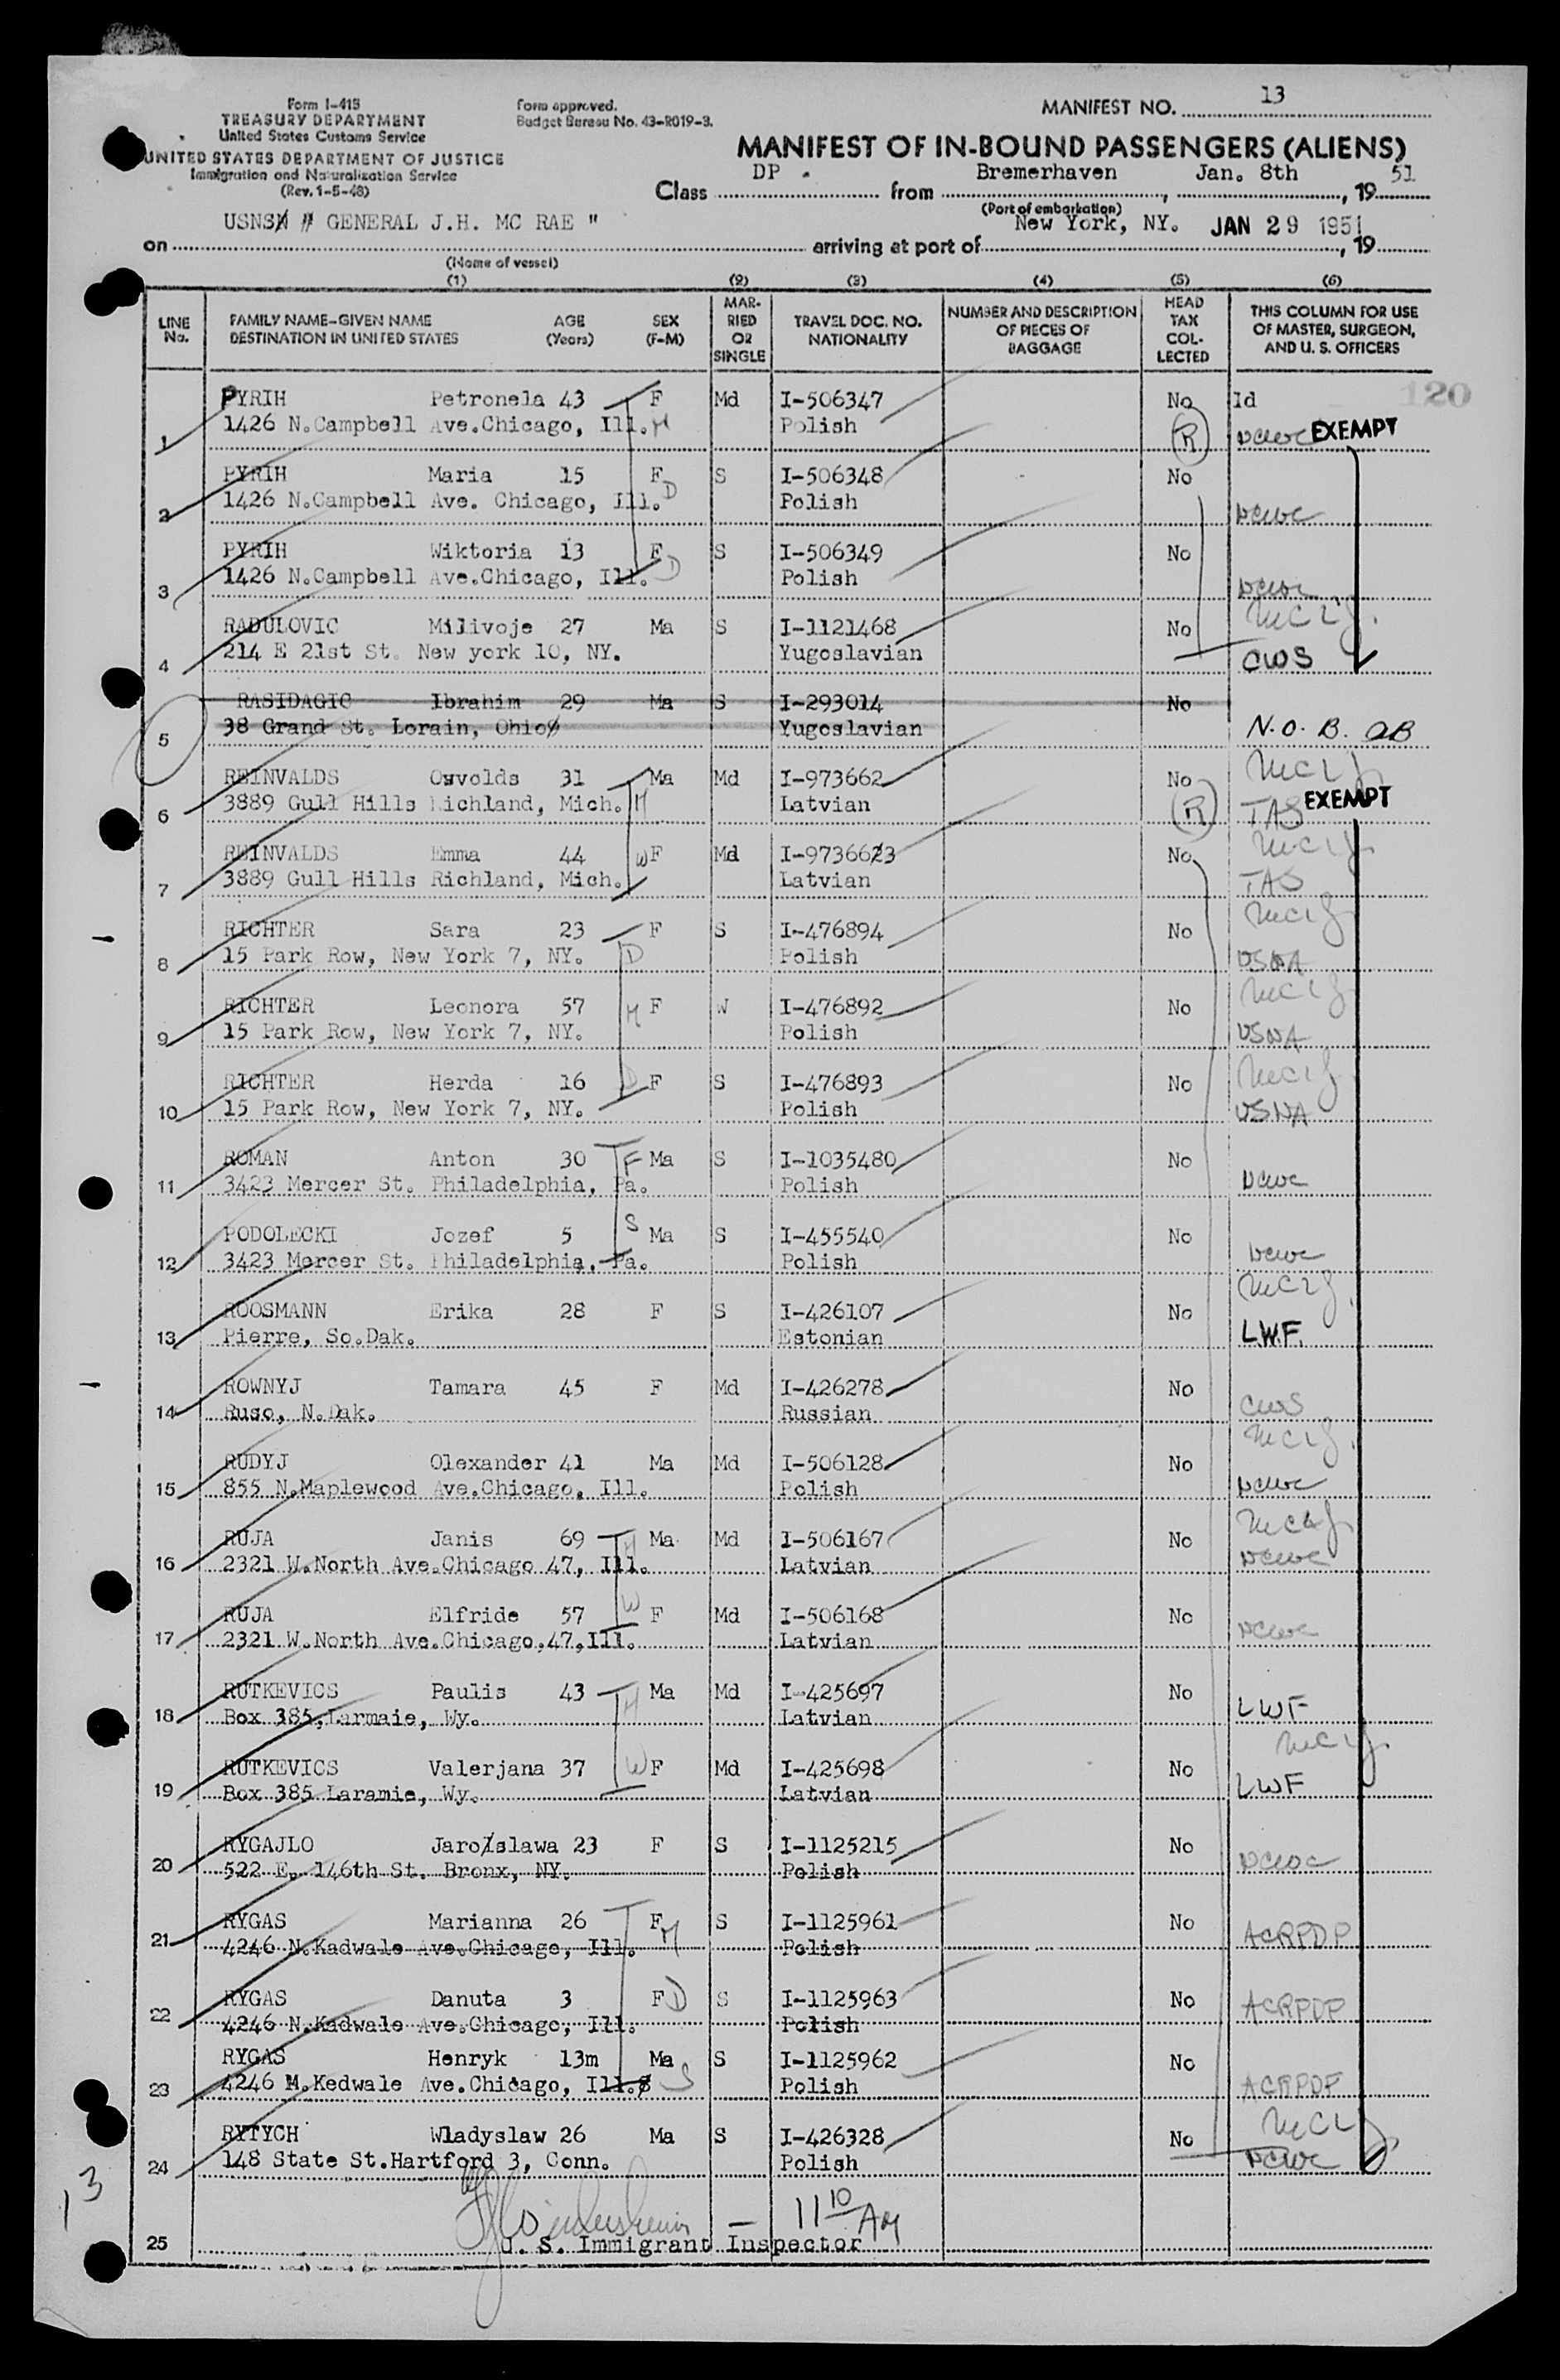 Form I-415
TREASURY DEPARTMENT
United States Customs Service
UNITED STATES DEPARTMENT OF JUSTICE
Immigration and Naturalization Service
(Rev. 1-5-48)
Form approved.
Budget Bureau No. 43-R019-3.
MANIFEST NO. 13
MANIFEST OF IN-BOUND PASSENGERS (ALIENS)
Class DP. from Bremerhaven, Jan. 8th, 1951
(Port of embarkation)
on USNS " GENERAL J.H. MC RAE " arriving at port of New York, NY. JAN 29 1951, 19
(Name of vessel)
(1) (2) (3) (4) (5) (6)
LINE No. FAMILY NAME-GIVEN NAME DESTINATION IN UNITED STATES AGE (Years) SEX (F-M) MARRIED OR SINGLE TRAVEL DOC. NO. NATIONALITY NUMBER AND DESCRIPTION OF PIECES OF BAGGAGE HEAD TAX COLLECTED THIS COLUMN FOR USE OF MASTER, SURGEON, AND U. S. OFFICERS
120
PYRIH Petronela 43 F Md I-506347 No Id
1 1426 N.Campbell Ave.Chicago, Ill. M Polish R NCWC EXEMPT
PYRIH Maria 15 F S I-506348 No
2 1426 N.Campbell Ave. Chicago, Ill. D Polish NCWC
PYRIH Wiktoria 13 F S I-506349 No
3 1426 N.Campbell Ave.Chicago, Ill. D Polish NCWC
RADULOVIC Milivoje 27 Ma S I-1121468 No
4 214 E 21st St. New york 10, NY. Yugoslavian CWS
RASIDAGIC Ibrahim 29 Ma S I-293014 No
5 38 Grand St. Lorain, Ohio Yugoslavian N.O.B. OB
REINVALDS Osvolds 31 Ma Md I-973662 No
6 3889 Gull Hills Richland, Mich. H Latvian R TAS EXEMPT
REINVALDS Emma 44 W F Md I-973663 No
7 3889 Gull Hills Richland, Mich. Latvian TAS
RICHTER Sara 23 F S I-476894 No
8 15 Park Row, New York 7, NY. D Polish USNA
RICHTER Leonora 57 M F W I-476892 No
9 15 Park Row, New York 7, NY. Polish USNA
RICHTER Herda 16 D F S I-476893 No
10 15 Park Row, New York 7, NY. Polish USNA
ROMAN Anton 30 F Ma S I-1035480 No
11 3423 Mercer St. Philadelphia, Pa. Polish NCWC
PODOLECKI Jozef 5 S Ma S I-455540 No
12 3423 Mercer St. Philadelphia, Pa. Polish NCWC
ROOSMANN Erika 28 F S I-426107 No
13 Pierre, So.Dak. Estonian L.W.F.
ROWNYJ Tamara 45 F Md I-426278 No
14 Ruso, N.Dak. Russian CWS
RUDYJ Olexander 41 Ma Md I-506128 No
15 855 N.Maplewood Ave.Chicago, Ill. Polish NCWC
RUJA Janis 69 H Ma Md I-506167 No
16 2321 W.North Ave.Chicago 47, Ill. Latvian NCWC
RUJA Elfride 57 W F Md I-506168 No
17 2321 W.North Ave.Chicago,47,Ill. Latvian NCWC
RUTKEVICS Paulis 43 H Ma Md I-425697 No
18 Box 385,Larmaie, Wy. Latvian LWF
RUTKEVICS Valerjana 37 W F Md I-425698 No
19 Box 385 Laramie, Wy. Latvian LWF
RYGAJLO Jaroslawa 23 F S I-1125215 No
20 522 E. 146th St. Bronx, NY. Polish NCWC
RYGAS Marianna 26 F M S I-1125961 No
21 4246 N.Kadwale Ave.Chicago, Ill. Polish ACRPDP
RYGAS Danuta 3 F D S I-1125963 No
22 4246 N.Kadwale Ave.Chicago, Ill. Polish ACRPDP
RYGAS Henryk 13m Ma S I-1125962 No
23 4246 M.Kedwale Ave.Chicago, Ill. S Polish ACRPDP
RYTYCH Wladyslaw 26 Ma S I-426328 No
24 148 State St.Hartford 3, Conn. Polish NCWC
13
11 10 AM
25 U. S. Immigrant Inspector